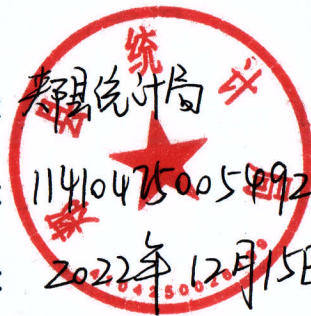 郏县统计局
11410425005492
2022年12月15日
郏县统计局